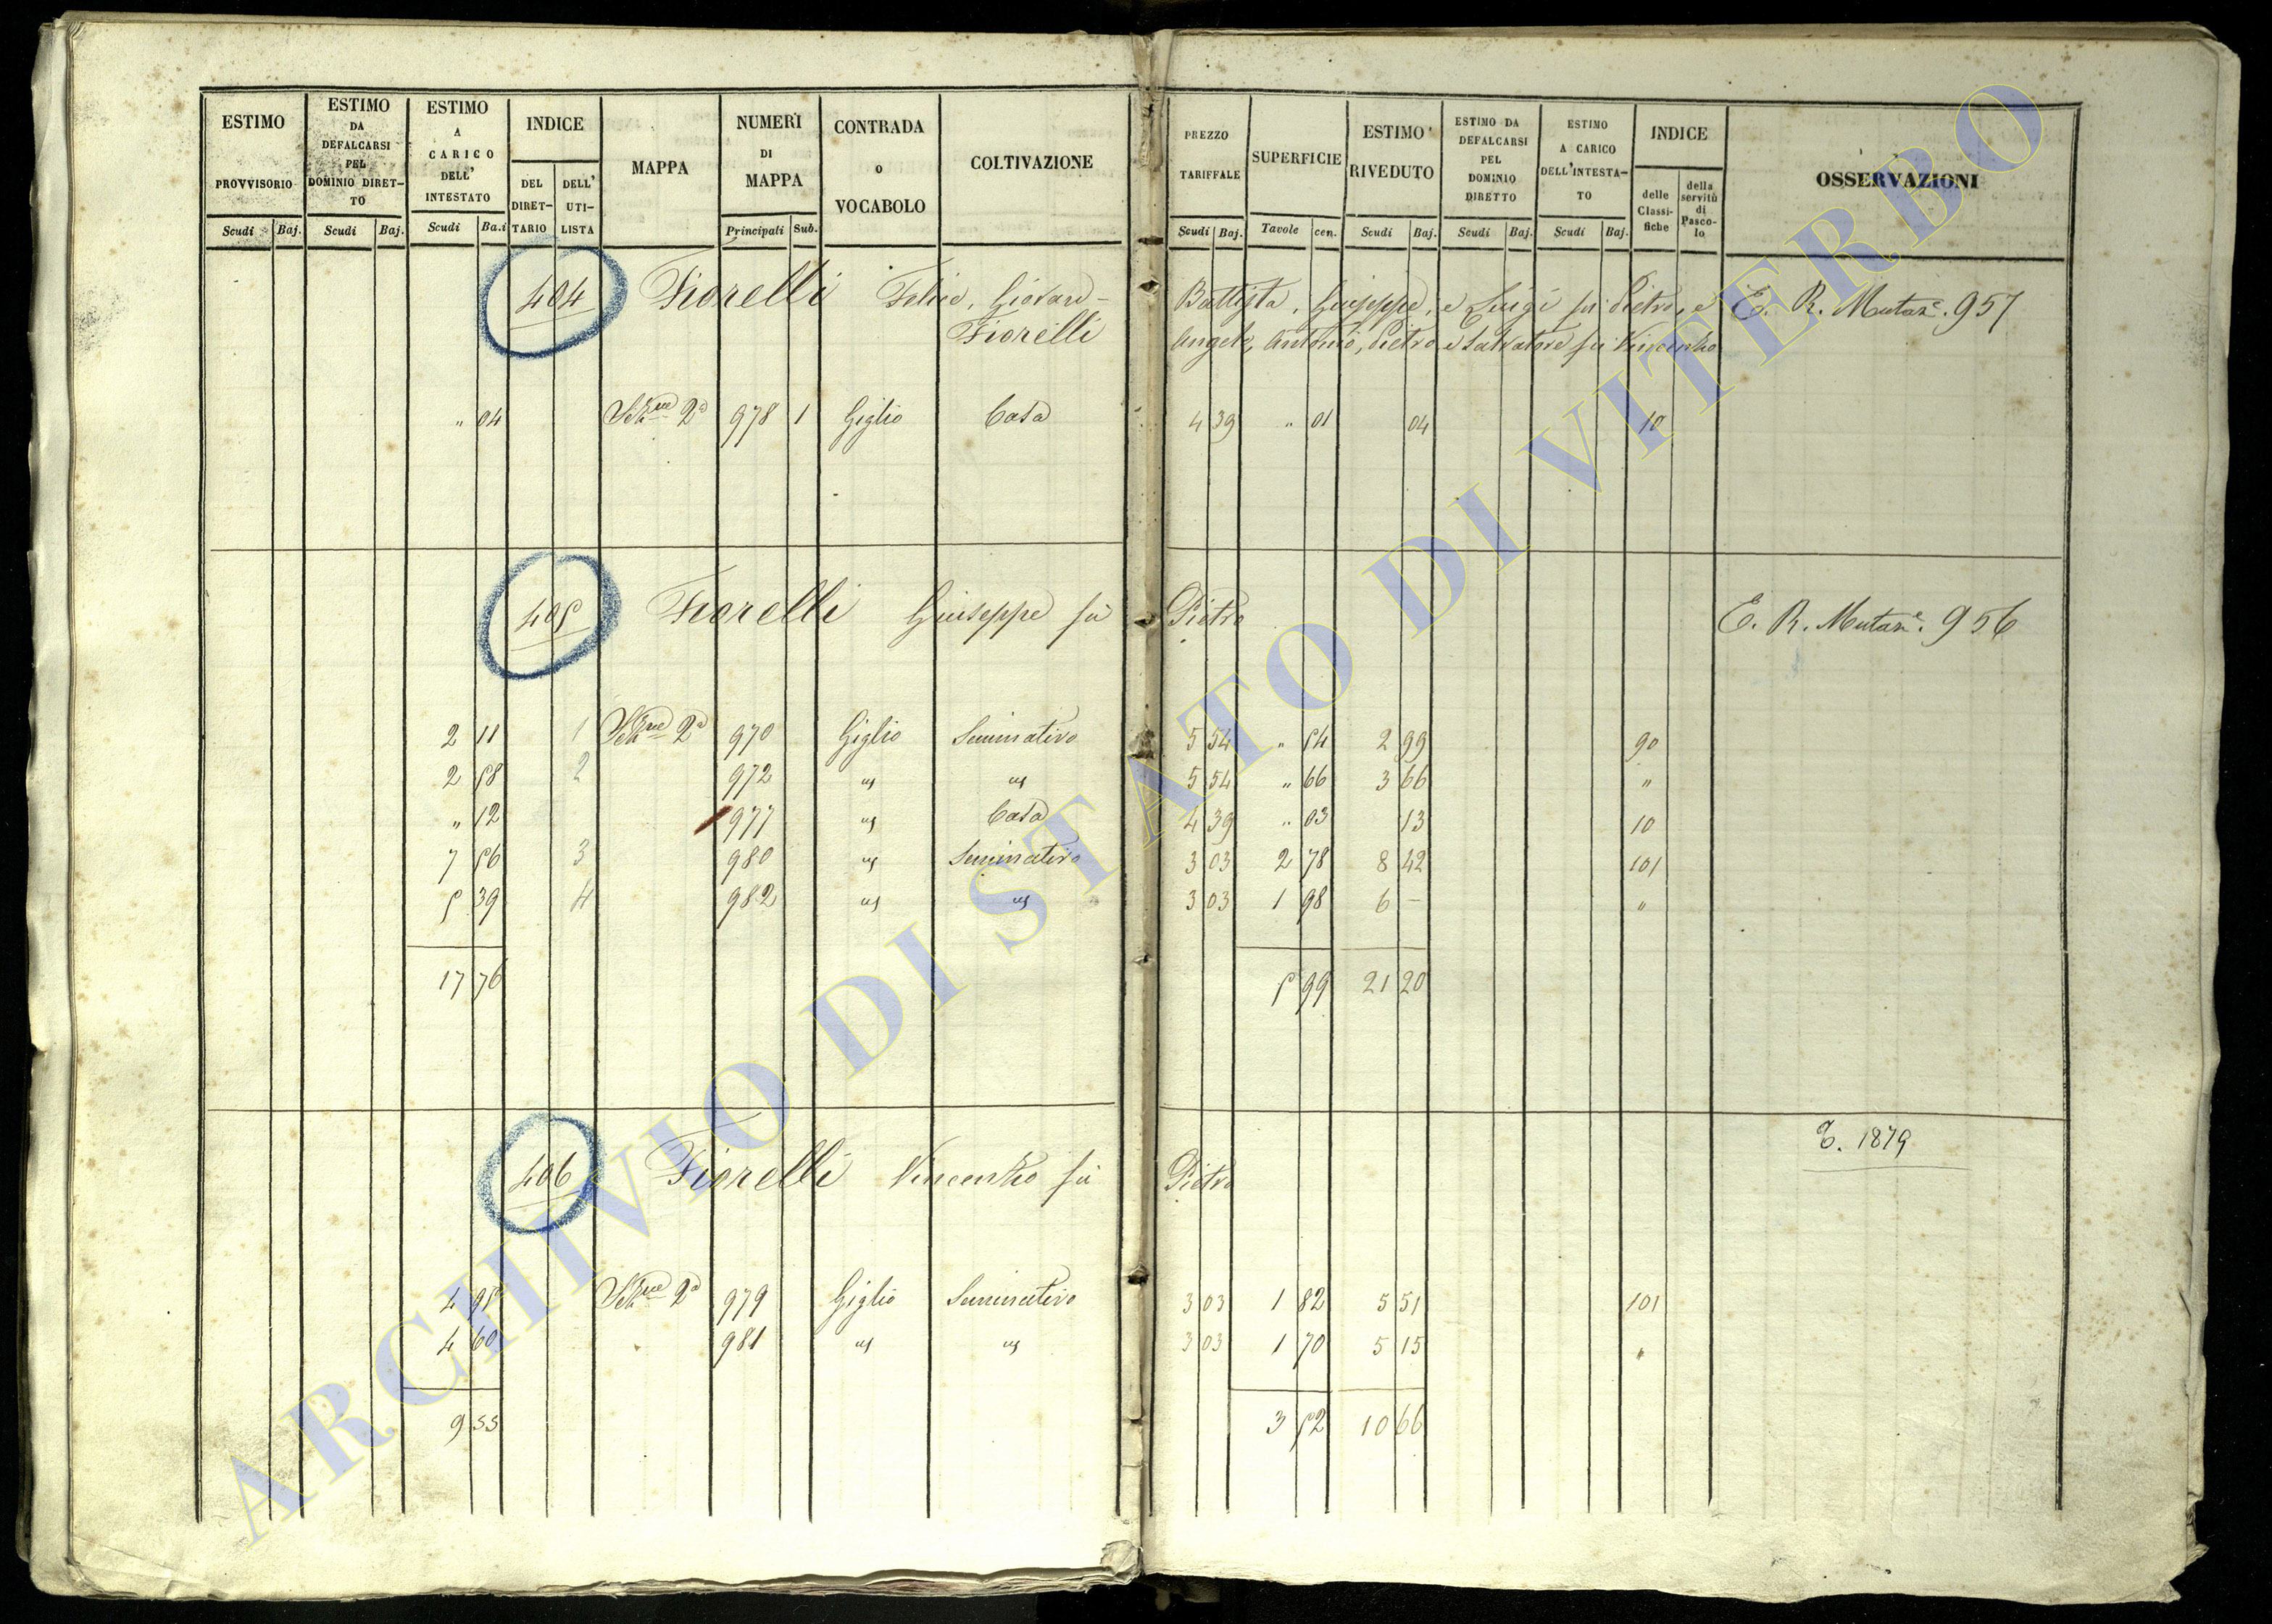 ESTIMO PROVVISORIO Scudi Baj.
ESTIMO DA DEFALCARSI PEL DOMINIO DIRET-TO Scudi Baj.
ESTIMO A CARICO DELL' INTESTATO Scudi Ba.i
INDICE DEL DIRET-TARIO DELL' UTI-LISTA
MAPPA
NUMERI DI MAPPA Principali Sub.
CONTRADA o VOCABOLO
COLTIVAZIONE
PREZZO TARIFFALE Scudi Baj.
SUPERFICIE Tavole cen.
ESTIMO RIVEDUTO Scudi Baj.
ESTIMO DA DEFALCARSI PEL DOMINIO DIRETTO Scudi Baj.
ESTIMO A CARICO DELL'INTESTA-TO Scudi Baj.
INDICE delle Classi-fiche della servitù di Pasco-lo
OSSERVAZIONI
404 Fiorelli Felice, Giovan- Battista, Giuseppe, e Luigi fu Pietro, e E. R. Mutaz.e 957
Fiorelli Angelo, Antonio, Pietro e Salvatore fu Vincenzo
" 04 Sez.ne 2a 978 1 Giglio Casa 4 39 " 01 04 10
405 Fiorelli Giuseppe fu Pietro E. R. Mutaz.e 956
2 11 1 Sez.ne 2a 970 Giglio Seminativo 5 54 " 54 2 99 90
2 58 2 972 " " 5 54 " 66 3 66 "
" 12 977 " Casa 4 39 " 03 13 10
7 56 3 980 " Seminativo 3 03 2 78 8 42 101
5 39 4 982 " " 3 03 1 98 6 – "
17 76 5 99 21 20
1879
406 Fiorelli Vincenzo fu Pietro
4 95 Sez.ne 2a 979 Giglio Seminativo 3 03 1 82 5 51 101
4 60 981 " " 3 03 1 70 5 15 "
9 55 3 52 10 66
ARCHIVIO DI STATO DI VITERBO